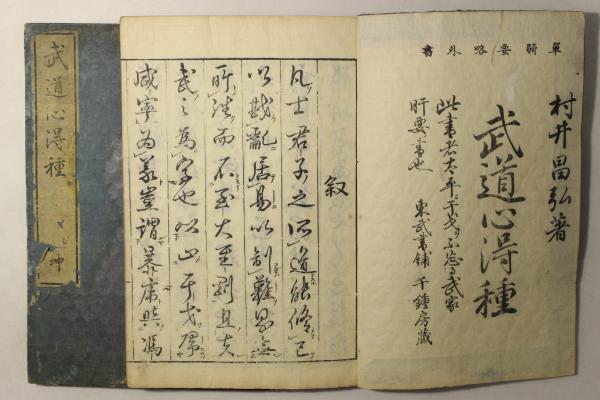 單騎要略外書
村井昌弘著
武道心得種
此書者太平干戈不忘武家
肝要書也
東武書舗 千鍾房藏
叙
凡士君子之所道能修己
以戡亂居易以制難
所往而不至大至剛且夫
武之為字也从止于戈
咸寧為義豈謂暴虎與馮
武道心得種
坤